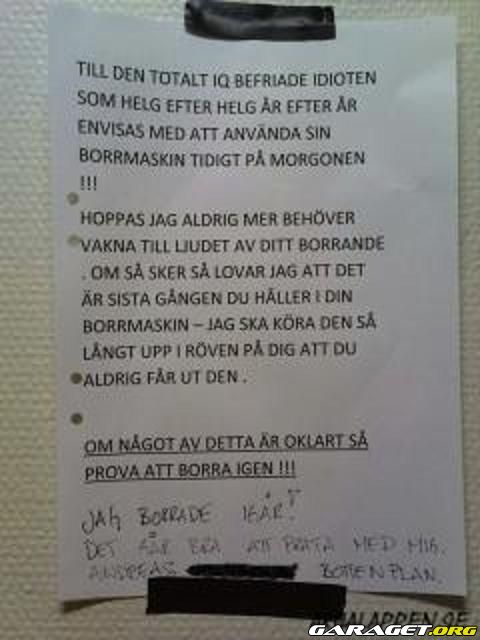 TILL DEN TOTALT IQ BEFRIADE IDIOTEN
SOM HELG EFTER HELG ÅR EFTER ÅR
ENVISAS MED ATT ANVÄNDA SIN
BORRMASKIN TIDIGT PÅ MORGONEN
!!!
HOPPAS JAG ALDRIG MER BEHÖVER
VAKNA TILL LJUDET AV DITT BORRANDE
. OM SÅ SKER SÅ LOVAR JAG ATT DET
ÄR SISTA GÅNGEN DU HÅLLER I DIN
BORRMASKIN – JAG SKA KÖRA DEN SÅ
LÅNGT UPP I RÖVEN PÅ DIG ATT DU
ALDRIG FÅR UT DEN .
OM NÅGOT AV DETTA ÄR OKLART SÅ
PROVA ATT BORRA IGEN !!!
JAG BORRADE IGÅR!
DET GÅR BRA ATT PRATA MED MIG.
ANDREAS BOTTENPLAN.
GARAGET.ORG